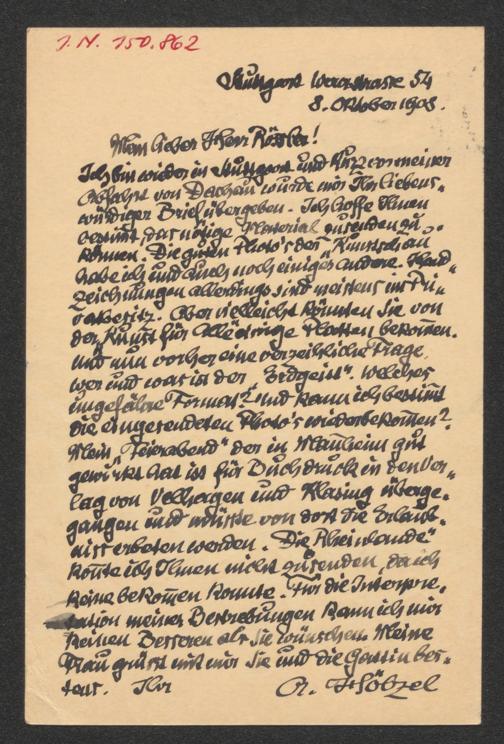 I.N. 150.862
Stuttgart Werastrasse 54
8. Oktober 1908.
Mein lieber Herr Rössler!
Ich bin wieder in Stuttgart und kurz vor meiner
Abfahrt von Dachau wurde mir Ihr liebens-
würdiger Brief übergeben. Ich hoffe Ihnen
bestimt das nötige Material zusenden zu
können. Die guten Photo's der "Kunstschau
habe ich und auch noch einige andere. Hand-
zeichnungen allerdings sind meistens im Pri-
vatbesitz. Aber vielleicht könnten Sie von
der "Kunst für Alle" einige Platten bekomen.
Und nun vorher eine verzeihliche Frage,
wer und was ist der "Erdgeist". Welches
ungefähre Format? Und kann ich bestimt
die eingesendeten Photo's wiederbekomen?
Mein "Feierabend" der in Manheim gut
gewirkt hat ist für Buchdruck in den Ver-
lag von Velhagen und Klasing überge-
gangen und müsste von dort die Erlaub-
nis erbeten werden. "Die Rheinlande"
konte ich Ihnen nicht zusenden, da ich
keine bekomen konnte. Für die Interpre-
tation meiner Bestrebungen kann ich mir
keinen Besseren als Sie wünschen. Meine
Frau grüsst mit mir Sie und die Gattin bes-
tens. Ihr A. Hölzel